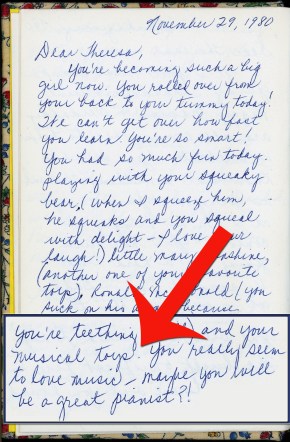 November 29, 1980
Dear Theresa,
You're becoming such a big
girl now. You rolled over from
your back to your tummy today!
I can't get over how fast
you learn. You're so smart!
You had so much fun today
playing with your squeaky
bear, (when I squeeze him,
he squeaks and you squeal
with delight - I love your
laugh!) little mary sunshine,
(another one of your favorite
toys), Ronald McDonald (you
suck on his because
You're teething and your
musical toys. You really seem
to love music - maybe you will
be a great pianist?!